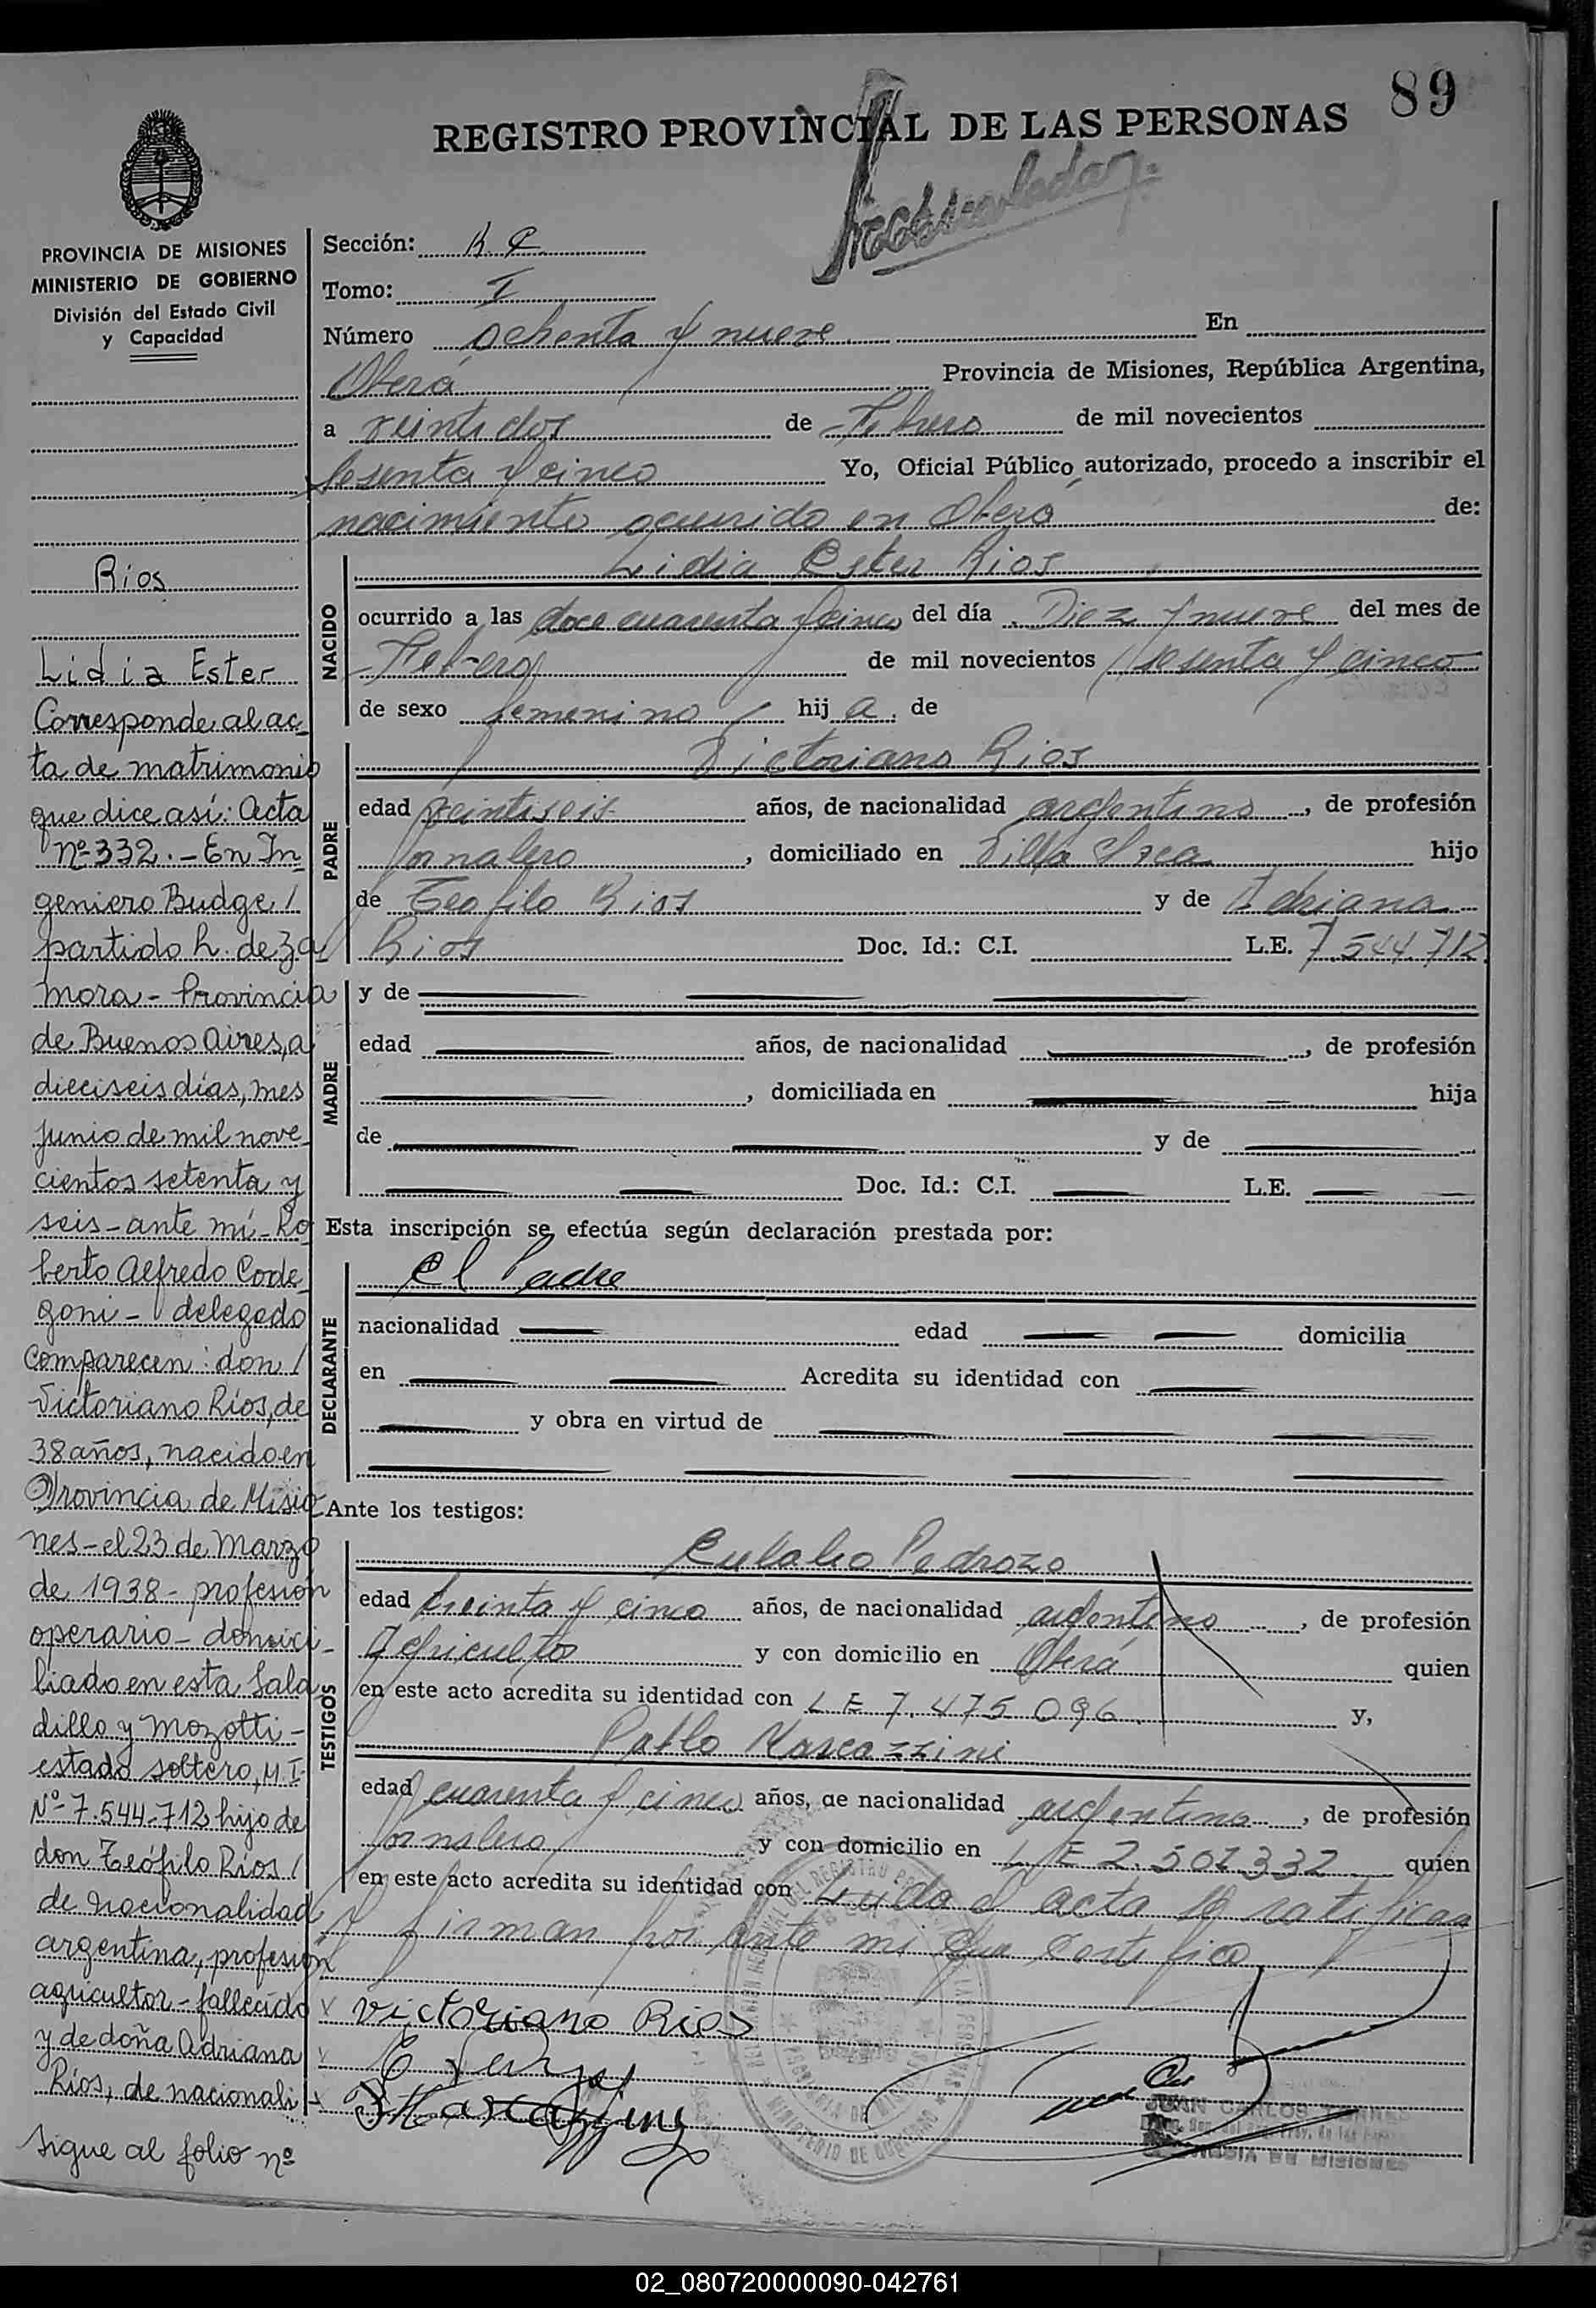 89
REGISTRO PROVINCIAL DE LAS PERSONAS
PROVINCIA DE MISIONES
MINISTERIO DE GOBIERNO
División del Estado Civil
y Capacidad
Rios
Lidia Ester
Corresponde al ac
ta de matrimonio
que dice así: Acta
Nº 332.- En In
geniero Budge /
partido L. de Za
mora - Provincia
de Buenos Aires, a
dieciseis días, mes
junio de mil nove
cientos setenta y
seis - ante mí - Ro
berto Alfredo Code
goni - delegado
Comparecen: don /
Victoriano Ríos, de
38 años, nacido en
Provincia de Misio
nes - el 23 de Marzo
de 1938 - profesión
operario - domici-
liado en esta Sala
dillo y Mozotti -
estado soltero, M.I.
Nº 7.544.712 hijo de
don Teófilo Ríos /
de nacionalidad
argentina, profesión
agricultor - fallecido
y de doña Adriana
Ríos, de nacionali
sigue al folio nº
Sección:
Tomo: I
Número Ochenta y nueve En
Oberá Provincia de Misiones, República Argentina,
a veintidos de Febrero de mil novecientos
sesenta y cinco Yo, Oficial Público autorizado, procedo a inscribir el
nacimiento ocurrido en Oberá de:
NACIDO
Lidia Ester Rios
ocurrido a las doce cuarenta y cinco del día Diez y nueve del mes de
Febrero de mil novecientos sesenta y cinco
de sexo femenino hij a de
PADRE
Victoriano Rios
edad veintiseis años, de nacionalidad argentino, de profesión
Jornalero, domiciliado en Villa hijo
de Teofilo Rios y de Adriana
Rios Doc. Id.: C.I. L.E. 7.544.712.
MADRE
y de
edad años, de nacionalidad, de profesión
, domiciliada en hija
de y de
Doc. Id.: C.I. L.E.
Esta inscripción se efectúa según declaración prestada por:
DECLARANTE
El Padre
nacionalidad edad domicilia
en Acredita su identidad con
y obra en virtud de
Ante los testigos:
TESTIGOS
Eulalio Pedrozo
edad treinta y cinco años, de nacionalidad argentino, de profesión
Agricultor y con domicilio en Oberá quien
en este acto acredita su identidad con L E 7.475 096 y,
Pablo Marcazzini
edad cuarenta y cinco años, de nacionalidad argentino, de profesión
Jornalero y con domicilio en L E 2.501.332 quien
en este acto acredita su identidad con Leida el acta la ratifican
y firman por ante mi que certifico
Victoriano Rios
JUAN CARLOS
02_080720000090-042761